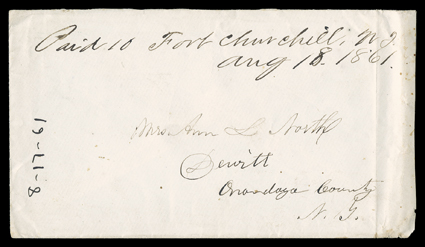 Paid 10 Fort Churchill, N.T.
Aug 18. 1861.
Mrs Ann L North
Dewitt
Onondaga County
N.Y.
8-17-61